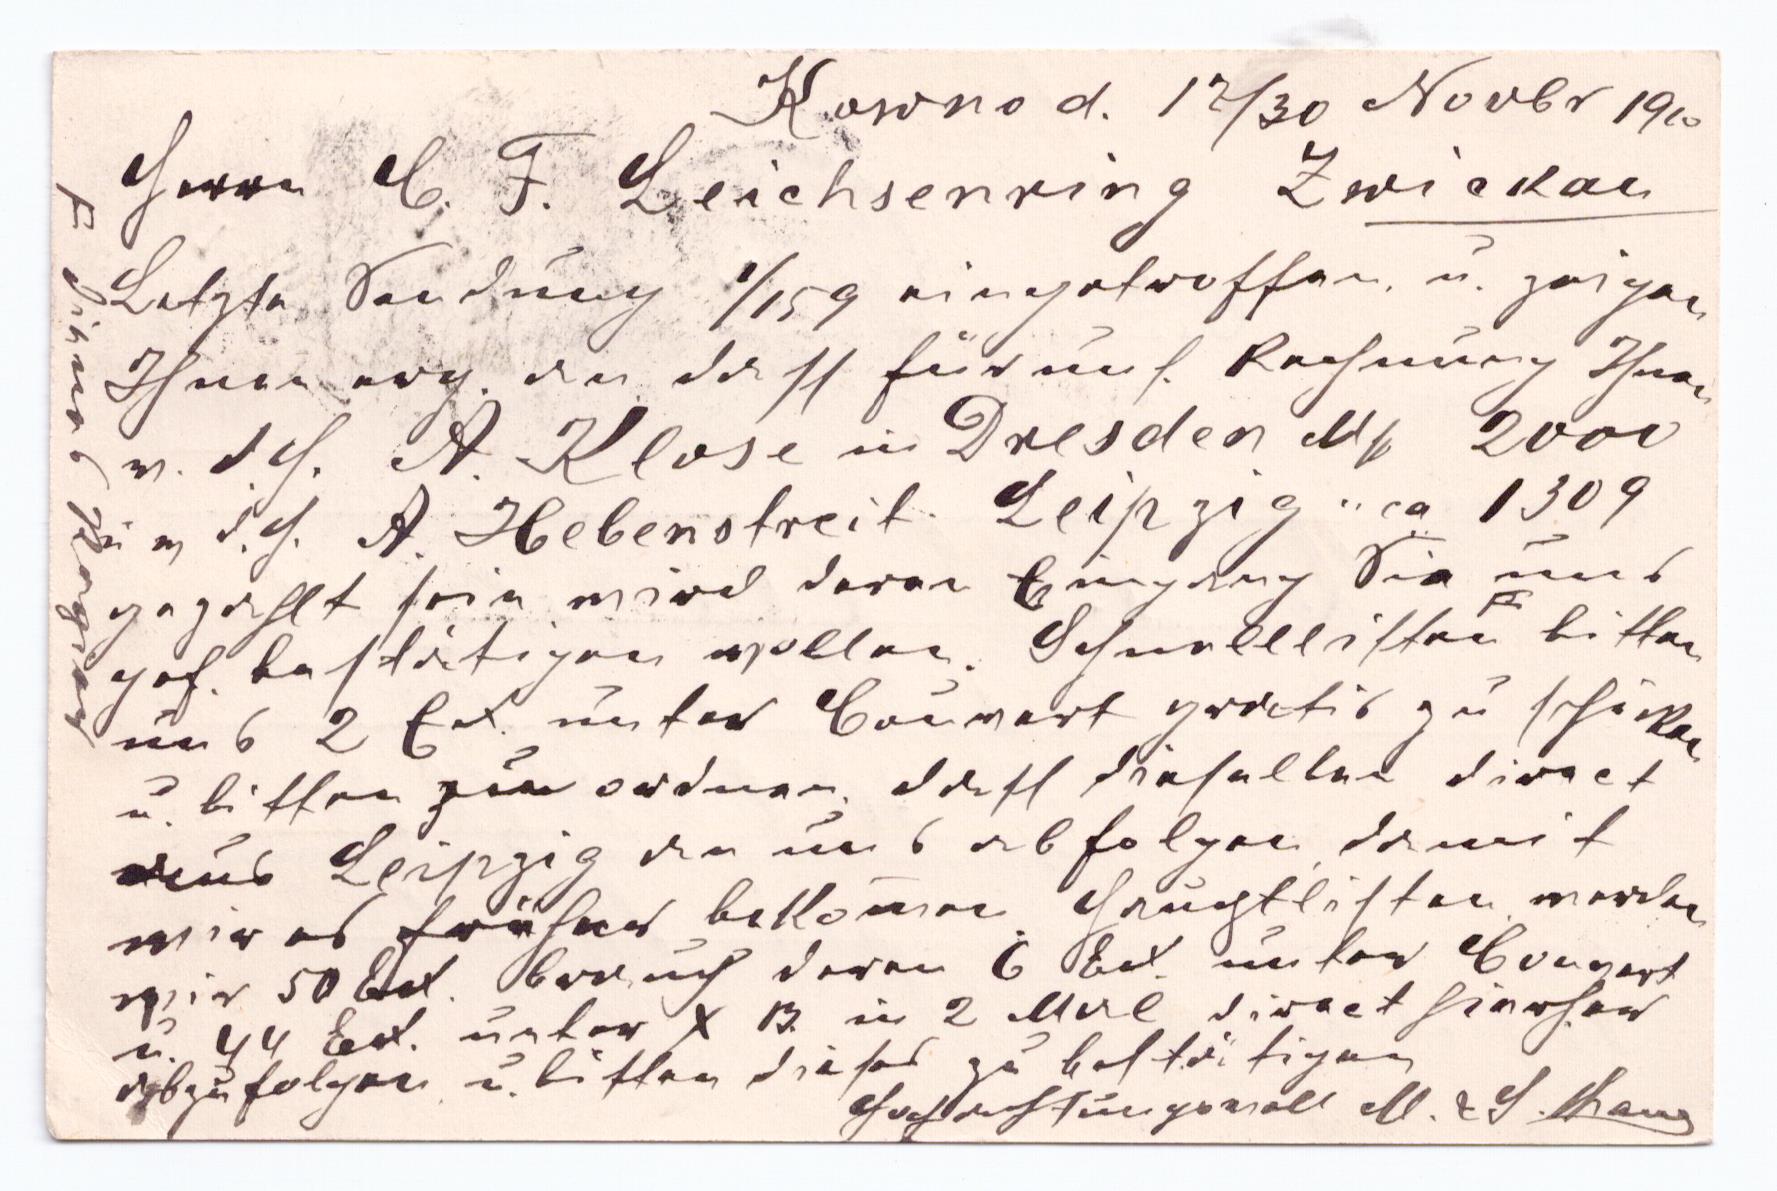 Kowno d. 17/30 Novbr 1910
Herrn C. F. Leichsenring Zwickau
Letzte Sendung 1/159 eingetroffen. u. zeigen
Ihnen erg. an dass für uns. Rechnung Ihnen
v. d. H. A. Klose in Dresden Mk 2000
u v d. H. A. Hebenstreit Leipzig " ca 1309
gezahlt sein wird deren Eingang Sie uns
gef. bestätigen wollen. Schnelllisten bitten
uns 2 Ex. unter Couvert gratis zu schicken
u. bitten zu ordnen, dass dieselben direct
aus Leipzig an uns abfolgen damit
wir es früher bekom̄en. Hauptlisten werden
wir 50 Ex. brauch deren 6 Ex. unter Couvert
u. 44 Ex. unter X B. in 2 Mal direct hierher
abzufolgen u. bitten dieses zu bestätigen
Hochachtungsvoll M. & S.